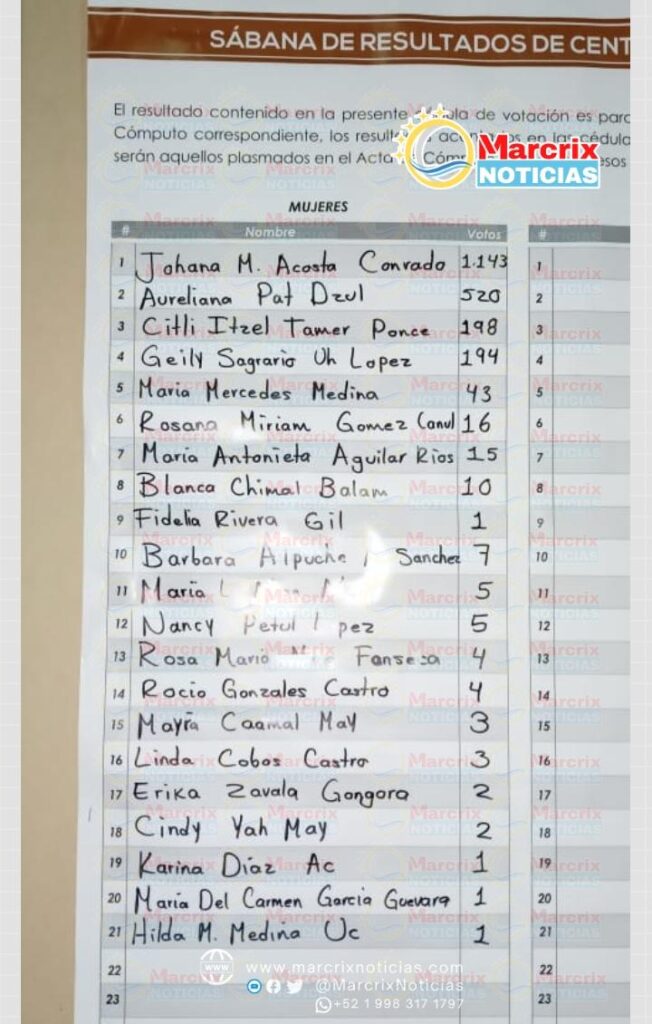 SÁBANA DE RESULTADOS DE CENT
El resultado contenido en la presente de votación es parc
Cómputo correspondiente, los en las cédula
serán aquellos plasmados en el Acta
Marcrix
NOTICIAS
MUJERES
# Nombre Votos #
1 Johana M. Acosta Conrado 1.143 1
2 Aureliana Pat Dzul 520 2
3 Citli Itzel Tamer Ponce 198 3
4 Geily Sagrario Uh Lopez 194 4
5 Maria Mercedes Medina 43 5
6 Rosana Miriam Gomez Canul 16 6
7 Maria Antonieta Aguilar Rios 15 7
8 Blanca Chimal Balam 10 8
9 Fidelia Rivera Gil 1 9
10 Barbara Alpuche Sanchez 7 10
11 Maria 5 11
12 Nancy Petul 5 12
13 Rosa Maria Fonseca 4 13
14 Rocio Gonzales Castro 4 14
15 Mayra Caamal May 3 15
16 Linda Cobos Castro 3 16
17 Erika Zavala Gongora 2 17
18 Cindy Yah May 2 18
19 Karina Díaz Ac 1 19
20 María Del Carmen Garcia Guevara 1 20
21 Hilda M. Medina Uc 1 21
22 22
23 23
www.marcrixnoticias.com
@MarcrixNoticias
+52 1 998 317 1797